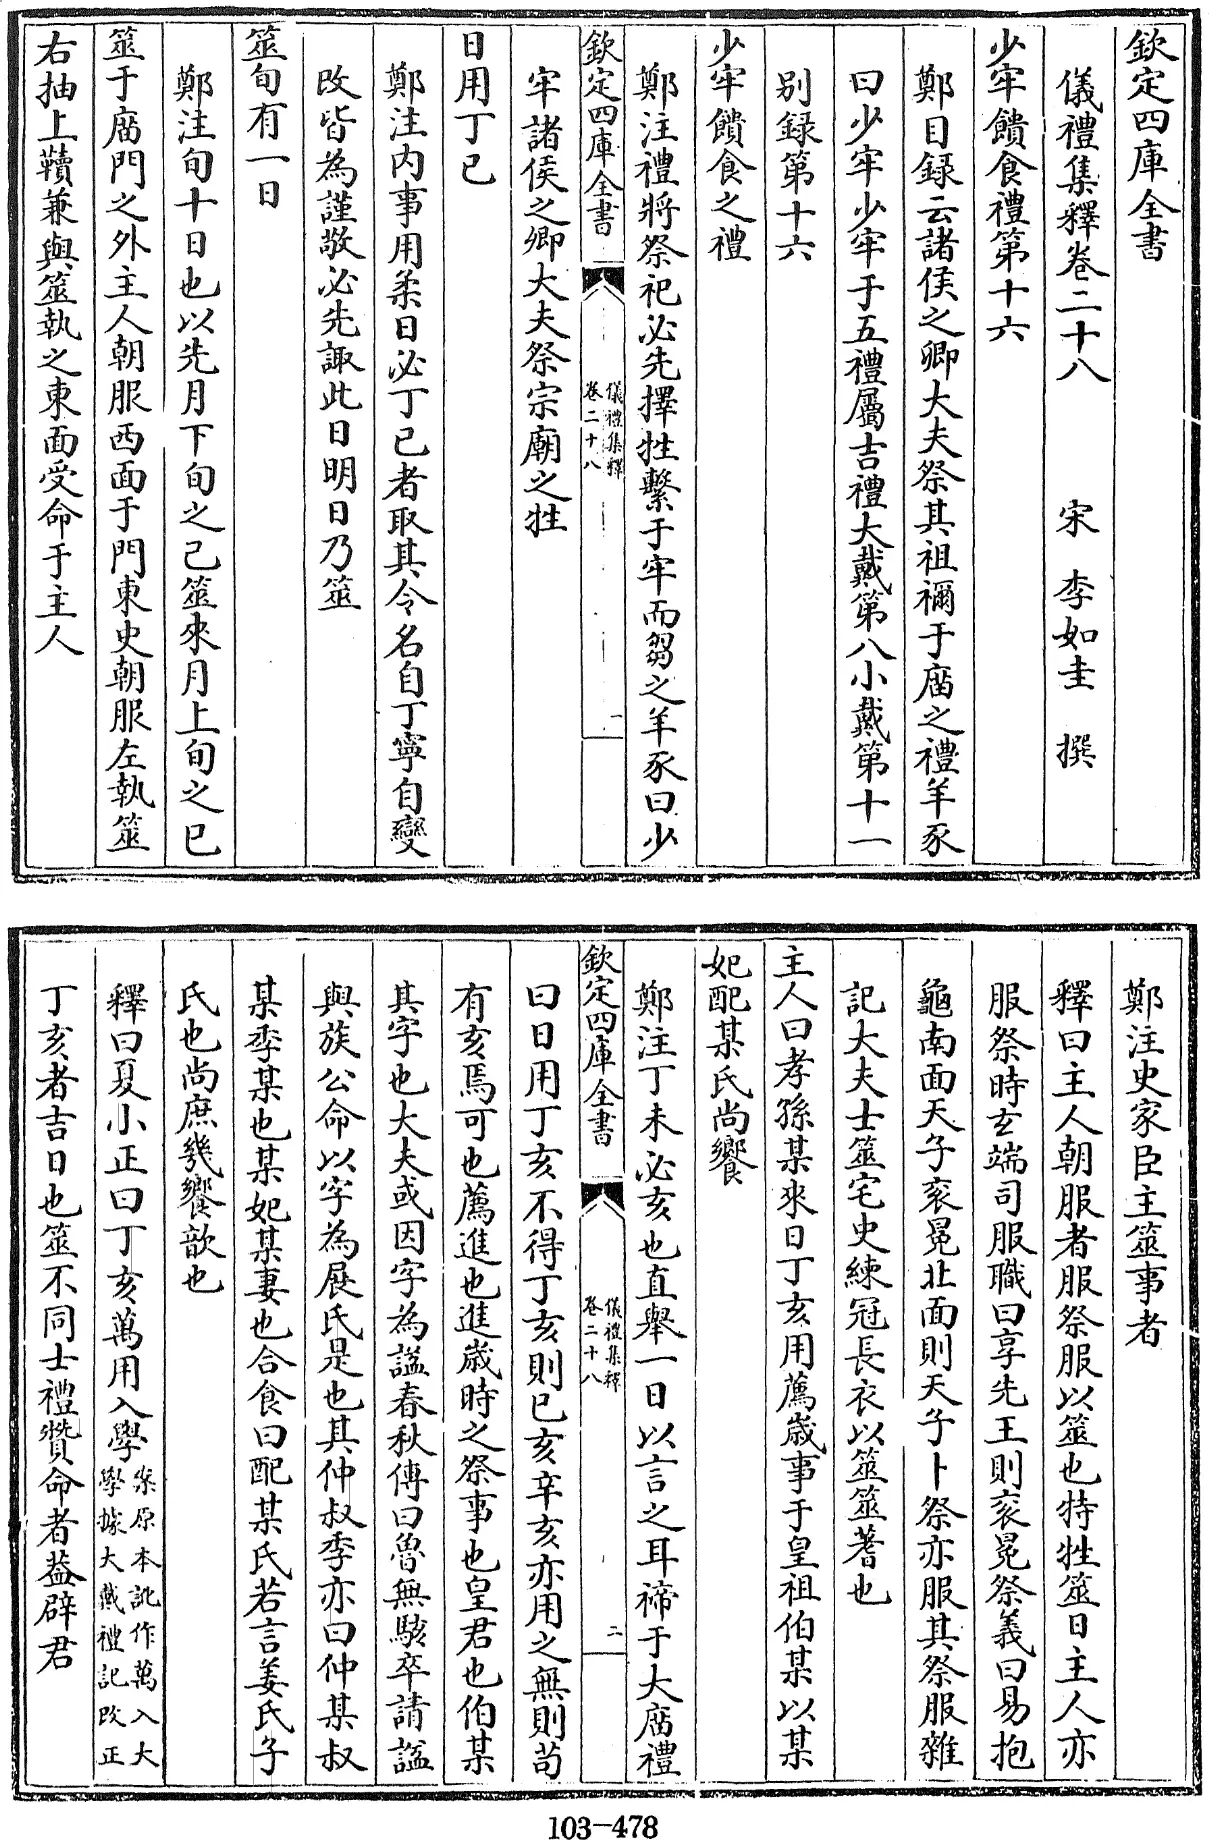 欽定四庫全書
儀禮集釋卷二十八　宋　李如圭　撰
少牢饋食禮第十六
鄭目録云諸侯之卿大夫祭其祖禰于廟之禮羊豕
曰少牢少牢于五禮屬吉禮大戴第八小戴第十一
别録第十六
少牢饋食之禮
鄭注禮將祭祀必先擇牲繫于牢而芻之羊豕曰少
欽定四庫全書
儀禮集釋
卷二十八
一
牢諸侯之卿大夫祭宗廟之牲
日用丁已
鄭注内事用柔日必丁已者取其令名自丁寧自變
改皆為謹敬必先諏此日明日乃筮
筮旬有一日
鄭注旬十日也以先月下旬之己筮來月上旬之巳
筮于廟門之外主人朝服西面于門東史朝服左執筮
右抽上韇兼與筮執之東面受命于主人
鄭注史家臣主筮事者
釋曰主人朝服者服祭服以筮也特牲筮日主人亦
服祭時玄端司服職曰享先王則衮冕祭義曰易抱
龜南面天子衮冕北面則天子卜祭亦服其祭服雜
記大夫士筮宅史練冠長衣以筮筮蓍也
主人曰孝孫某來日丁亥用薦歳事于皇祖伯某以某
妃配某氏尚饗
鄭注丁未必亥也直舉一日以言之耳禘于大廟禮
欽定四庫全書
儀禮集釋
卷二十八
二
曰日用丁亥不得丁亥則已亥辛亥亦用之無則苟
有亥焉可也薦進也進歳時之祭事也皇君也伯某
其字也大夫或因字為諡春秋傳曰魯無駭卒請諡
與族公命以字為展氏是也其仲叔季亦曰仲某叔
某季某也某妃某妻也合食曰配某氏若言姜氏子
氏也尚庶幾饗歆也
釋曰夏小正曰丁亥萬用入學
案原本訛作萬入大
學據大戴禮記改正
丁亥者吉日也筮不同士禮贊命者葢辟君
103-478